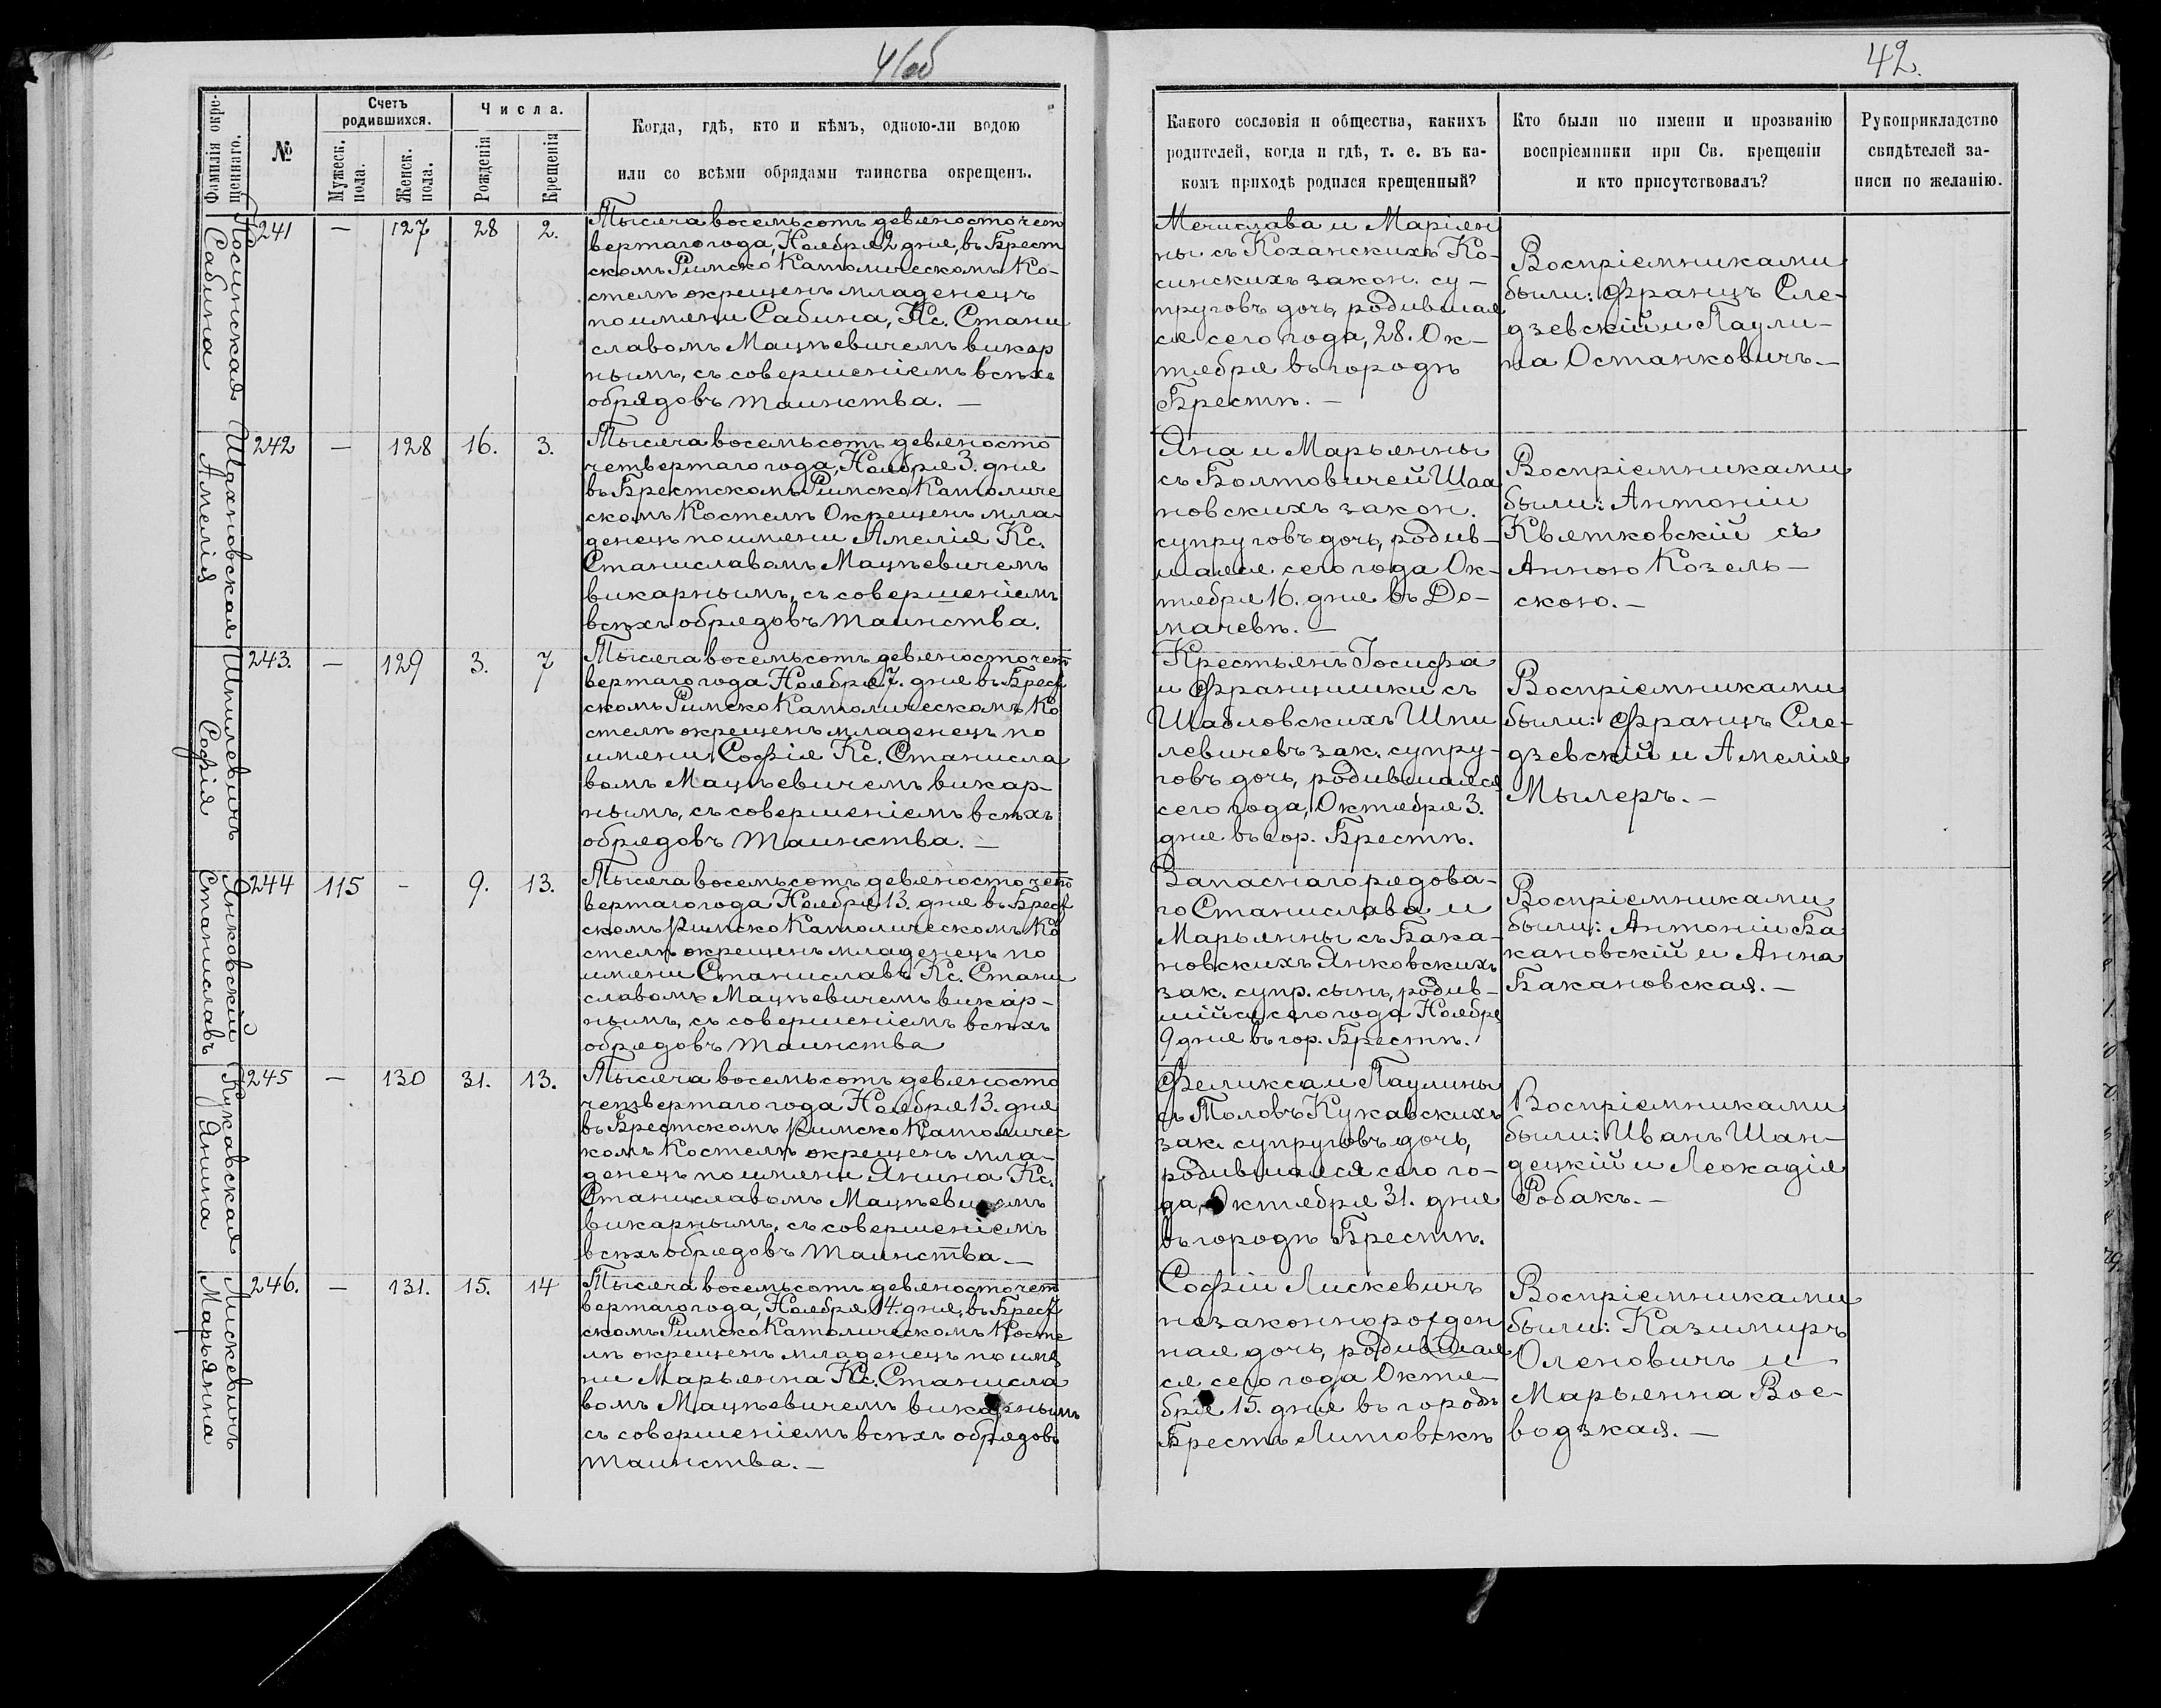 41об
42.
Фамилія окре-
щеннаго.
№
Счетъ
родившихся.
Мужеск.
пола.
Женск.
пола.
Числа.
Рожденія
Крещенія
Когда, гдѣ, кто и кѣмъ, одною-ли водою
или со всѣми обрядами таинства окрещенъ.
Какого сословія и общества, какихъ
родителей, когда и гдѣ, т. е. въ ка-
комъ приходѣ родился крещенный?
Кто были по имени и прозванію
воспріемники при Св. крещеніи
и кто присутствовалъ?
Рукоприкладство
свидѣтелей за-
писи по желанію.
Косинская
Сабина
241 — 127 28 2.
Тысяча восемьсотъ девяносто чет
вертаго года, Ноября 2 дня, въ Брест
скомъ Римско Католическомъ Ко-
стелѣ окрещенъ младенецъ
по имени Сабина, Кс. Стани
славомъ Мацѣевичемъ викар
нымъ, съ совершеніемъ всѣхъ
обрядовъ таинства. —
Мечислава и Маріян
ны съ Коханскихъ Ко-
синскихъ закон. су-
пруговъ дочь, родившая
ся сего года, 28. Ок-
тября въ городѣ
Брестѣ. —
Воспріемниками
были: Францъ Сле-
дзевскій и Паули-
на Останковичъ. —
Шахновская
Амелія
242 — 128 16. 3.
Тысяча восемьсотъ девяносто
четвертаго года, Ноября 3. дня
въ Брестскомъ Римско Католиче
скомъ Костелѣ Окрещенъ мла-
денецъ по имени Амелія Кс.
Станиславомъ Мацѣевичемъ
викарнымъ, съ совершеніемъ
всѣхъ обрядовъ таинства.
Яна и Марьянны
съ Болтовичей Шах
новскихъ закон.
супруговъ дочь, родив-
шаяся сего года Ок-
тября 16. дня въ До-
мачевѣ. —
Воспріемниками
были: Антоній
Квятковскій съ
Анною Козель-
скою. —
Шпилевичъ
Софія
243. — 129 3. 7
Тысяча восемьсотъ девяносто чет
вертаго года Ноября 7. дня въ Брест
скомъ Римско Католическомъ Ко
стелѣ окрещенъ младенецъ по
имени Софія Кс. Станисла
вомъ Мацѣевичемъ викар-
нымъ, съ совершеніемъ всѣхъ
обрядовъ Таинства. —
Крестьянъ Іосифа
и Францишки съ
Шабловскихъ Шпи
левичевъ зак. супру-
говъ дочь, родившаяся
сего года, Октября 3.
дня въ гор. Брестѣ.
Воспріемниками
были: Францъ Сле-
дзевскій и Амелія
Мылеръ. —
Янковскій
Станиславъ
244 115 - 9. 13.
Тысяча восемьсотъ девяносто чет
вертаго года Ноября 13. дня въ Брест
скомъ Римско Католическомъ Ко
стелѣ окрещенъ младенецъ по
имени Станиславъ Кс. Стани
славомъ Мацѣевичемъ викар-
нымъ, съ совершеніемъ всѣхъ
обрядовъ таинства
Запаснаго рядова-
го Станислава и
Марьянны съ Бака-
новскихъ Янковскихъ
зак. супр. сынъ, родив-
шійся сего года Ноября
9 дня въ гор. Брестѣ.
Воспріемниками
были: Антоній Ба
кановскій и Анна
Бакановская. —
Кукавская
Янина
245 — 130 31. 13.
Тысяча восемьсотъ девяносто
четвертаго года Ноября 13. дня
въ Брестскомъ Римско Католичес
комъ Костелѣ окрещенъ мла-
денецъ по имени Янина Кс.
Станиславомъ Мацѣевичемъ
викарнымъ, съ совершеніемъ
всѣхъ обрядовъ таинства —
Феликса и Паулины
съ Толовъ Кукавскихъ
зак. супруговъ дочь,
родившаяся сего го-
да, Октября 31. дня
въ городѣ Брестѣ.
Воспріемниками
были: Иванъ Шан-
децкій и Леокадія
Робакъ. —
Лискевичъ
Марьянна
246. — 131. 15. 14
Тысяча восемьсотъ девяносто чет
вертаго года, Ноября 14. дня, въ Брест
скомъ Римско Католическомъ Косте
лѣ окрещенъ младенецъ по име
ни Марьянна Кс. Станисла
вомъ Мацѣевичемъ викарнымъ
съ совершеніемъ всѣхъ обрядовъ
таинства. —
Софіи Лискевичъ
незаконнорожден
ная дочь, родившая
ся сего года Октя-
бря 15. дня въ городѣ
Брестъ Литовскѣ
Воспріемниками
были: Казимиръ
Оленовичъ и
Марьянна Вое-
водзкая. —